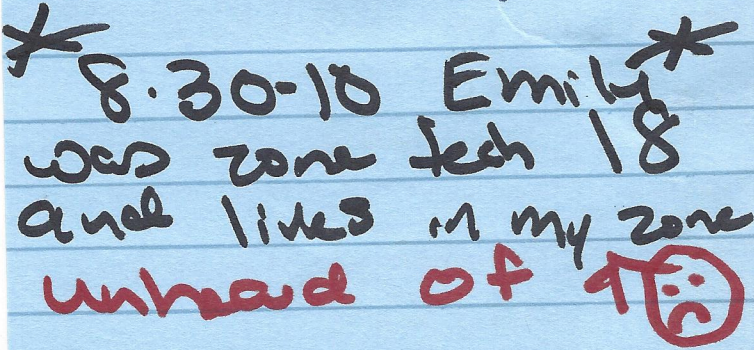 * 8.30-10 Emily *
was zone tech 18
and lives in my zone
unheard of ↑ ☹